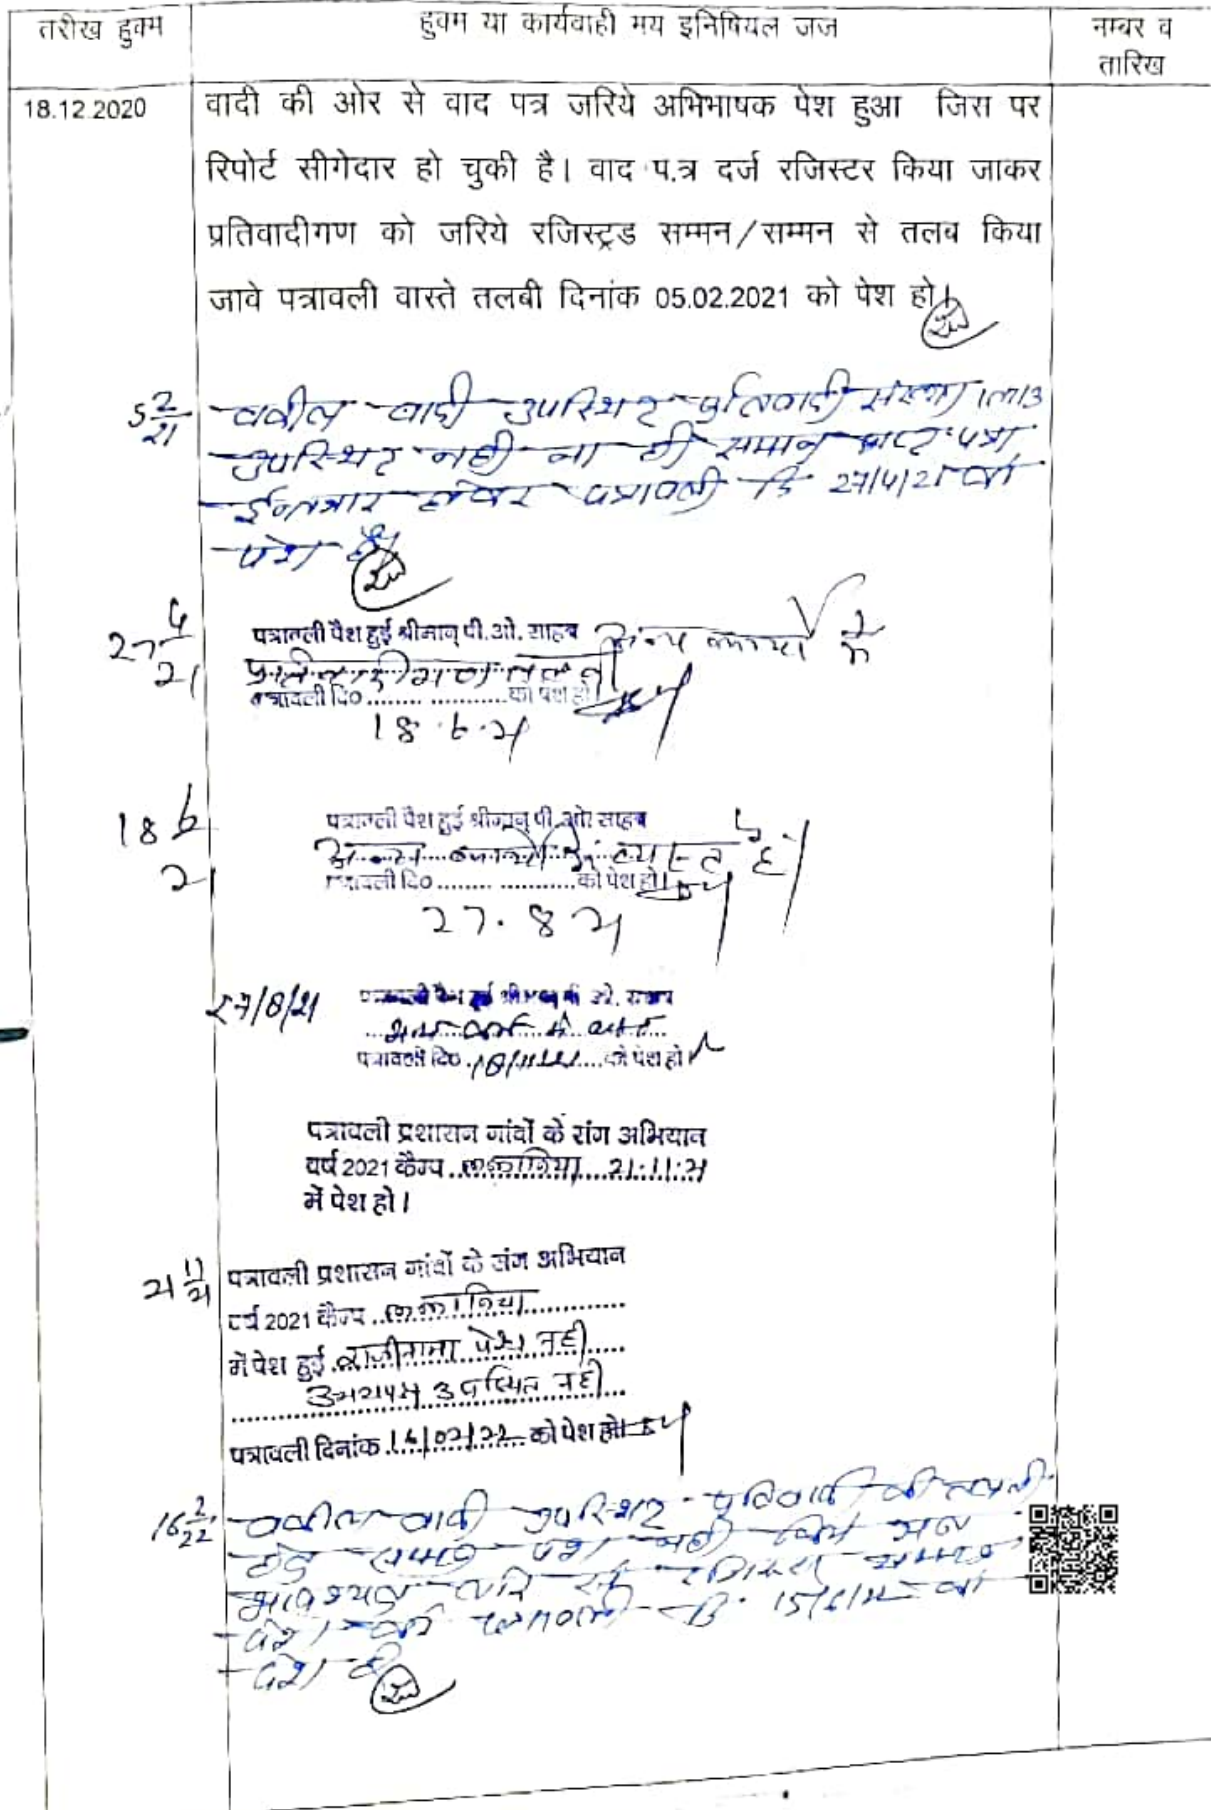 तरीख हुक्म
हुक्म या कार्यवाही मय इनिषियल जज
नम्बर व
तारिख
18.12.2020
वादी की ओर से वाद पत्र जरिये अभिभाषक पेश हुआ जिस पर
रिपोर्ट सीगेदार हो चुकी है। वाद प.त्र दर्ज रजिस्टर किया जाकर
प्रतिवादीगण को जरिये रजिस्ट्रड सम्मन/सम्मन से तलब किया
जावे पत्रावली वास्ते तलबी दिनांक 05.02.2021 को पेश हो।
5 2/21
वकील वादी उपस्थित प्रतिवादी संख्या 1 ता 3
उपस्थित नही ना ही
पत्रावली दि 27/4/21 को
पेश हो
27 4/21
पत्रावली पैश हुई श्रीमान् पी.ओ. साहब अन्य कार्यो में
प्रतिवादीगण तलबी
पत्रावली दि० .................... को पेश हो।
18.6.21
18 6/21
पत्रावली पैश हुई श्रीमान् पी.ओ. साहब
अन्य कार्यो में व्यस्त है
पत्रावली दि० .................... को पेश हो।
27.8 21
27/8/21
पत्रावली पैश हुई श्रीमान् पी. ओ. साहब
पत्रावली दि० 18/11/21 को पेश हो।
पत्रावली प्रशासन गांवों के संग अभियान
वर्ष 2021 कैम्प 21.11.21
में पेश हो।
21 11/21
पत्रावली प्रशासन गांवों के संग अभियान
वर्ष 2021 कैम्प
में पेश हुई राजीनामा पेश नही
उभयपक्ष उपस्थित नही
पत्रावली दिनांक 16/02/22 को पेश हो।
16 2/22
वकील वादी उपस्थित प्रतिवादी की तलबी
हेतु पेश नही किये
पेश करे पत्रावली दि. को
पेश हो